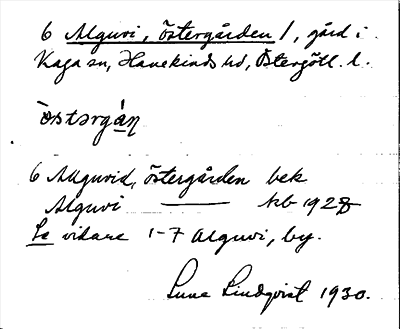 6 Alguvi, Östergården /, gård i
Kaga sn, Hanekinds hd, Östergötl. l.
östərgá̱ṇ
6 Alguvid, Östergården bek
Alguvi —— kb 1928
Se vidare 1-7 Alguvi, by.
Sune Lindqvist 1930.